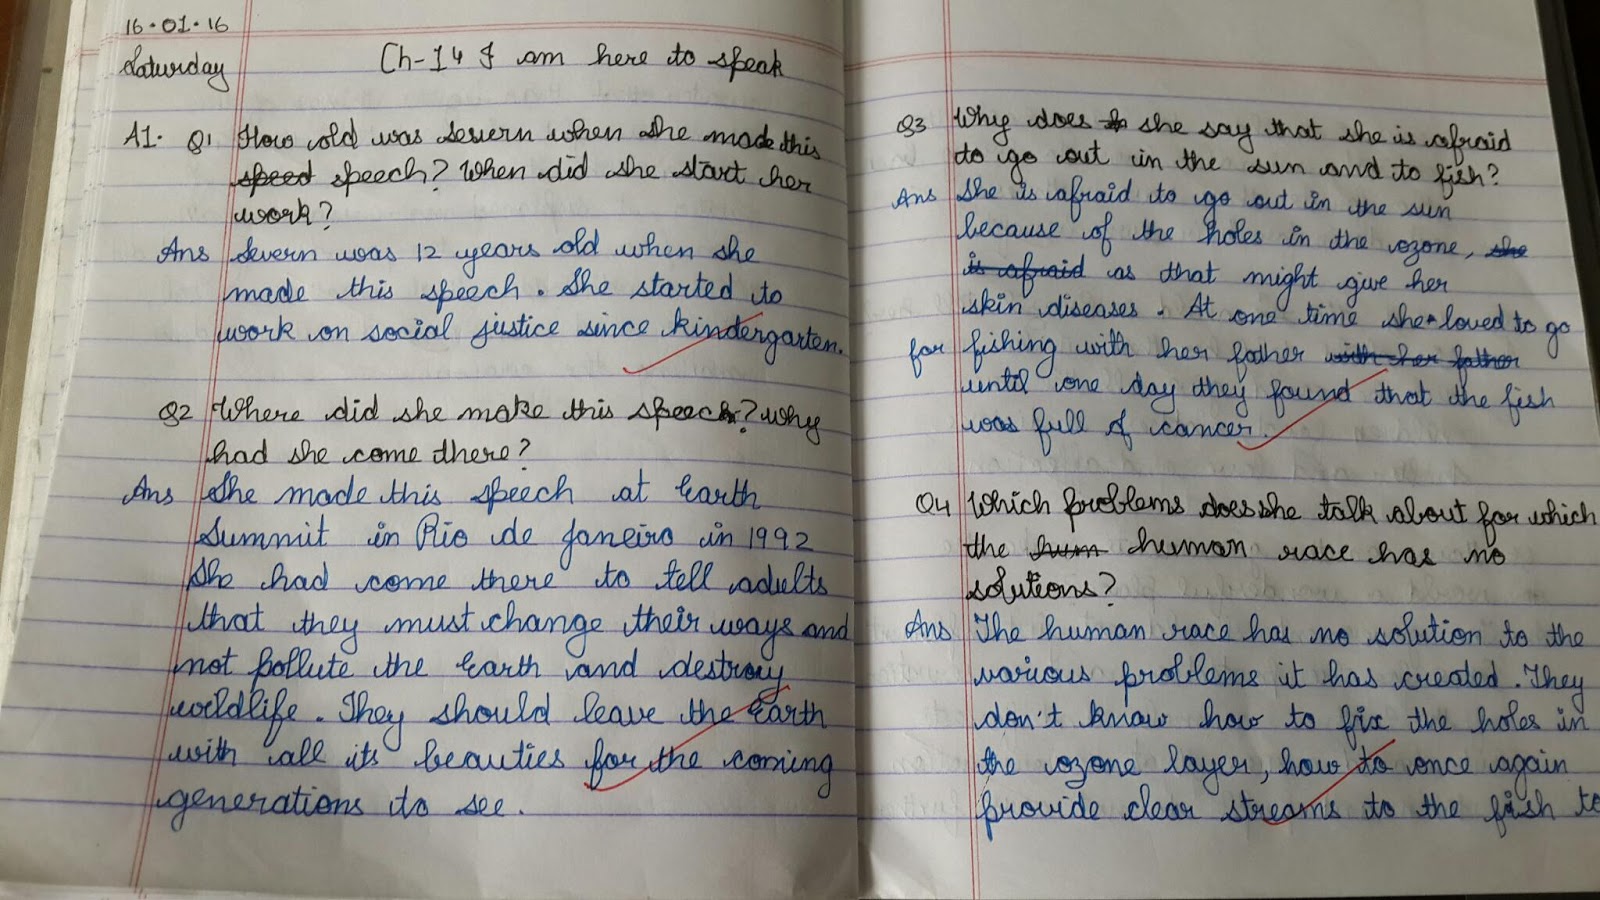 16.01.16
Saturday
Ch-14 I am here to speak
A1. Q1 How old was Severn when she made this
speed speech? When did she start her
work?
Ans Severn was 12 years old when she
made this speech. She started to
work on social justice since kindergarten.
Q2 Where did she make this speech? Why
had she come there?
Ans She made this speech at Earth
Summit in Rio de Janeiro in 1992
She had come there to tell adults
that they must change their ways and
not pollute the Earth and destroy
wildlife. They should leave the Earth
with all its beauties for the coming
generations to see.
Q3 Why does she say that she is afraid
to go out in the sun and to fish?
Ans She is afraid to go out in the sun
because of the holes in the ozone, she
is afraid as that might give her
skin diseases. At one time she loved to go
for fishing with her father with her father
until one day they found that the fish
was full of cancer.
Q4 Which problems does she talk about for which
the hum human race has no
solutions?
Ans The human race has no solution to the
various problems it has created. They
don't know how to fix the holes in
the ozone layer, how to once again
provide clear streams to the fish to